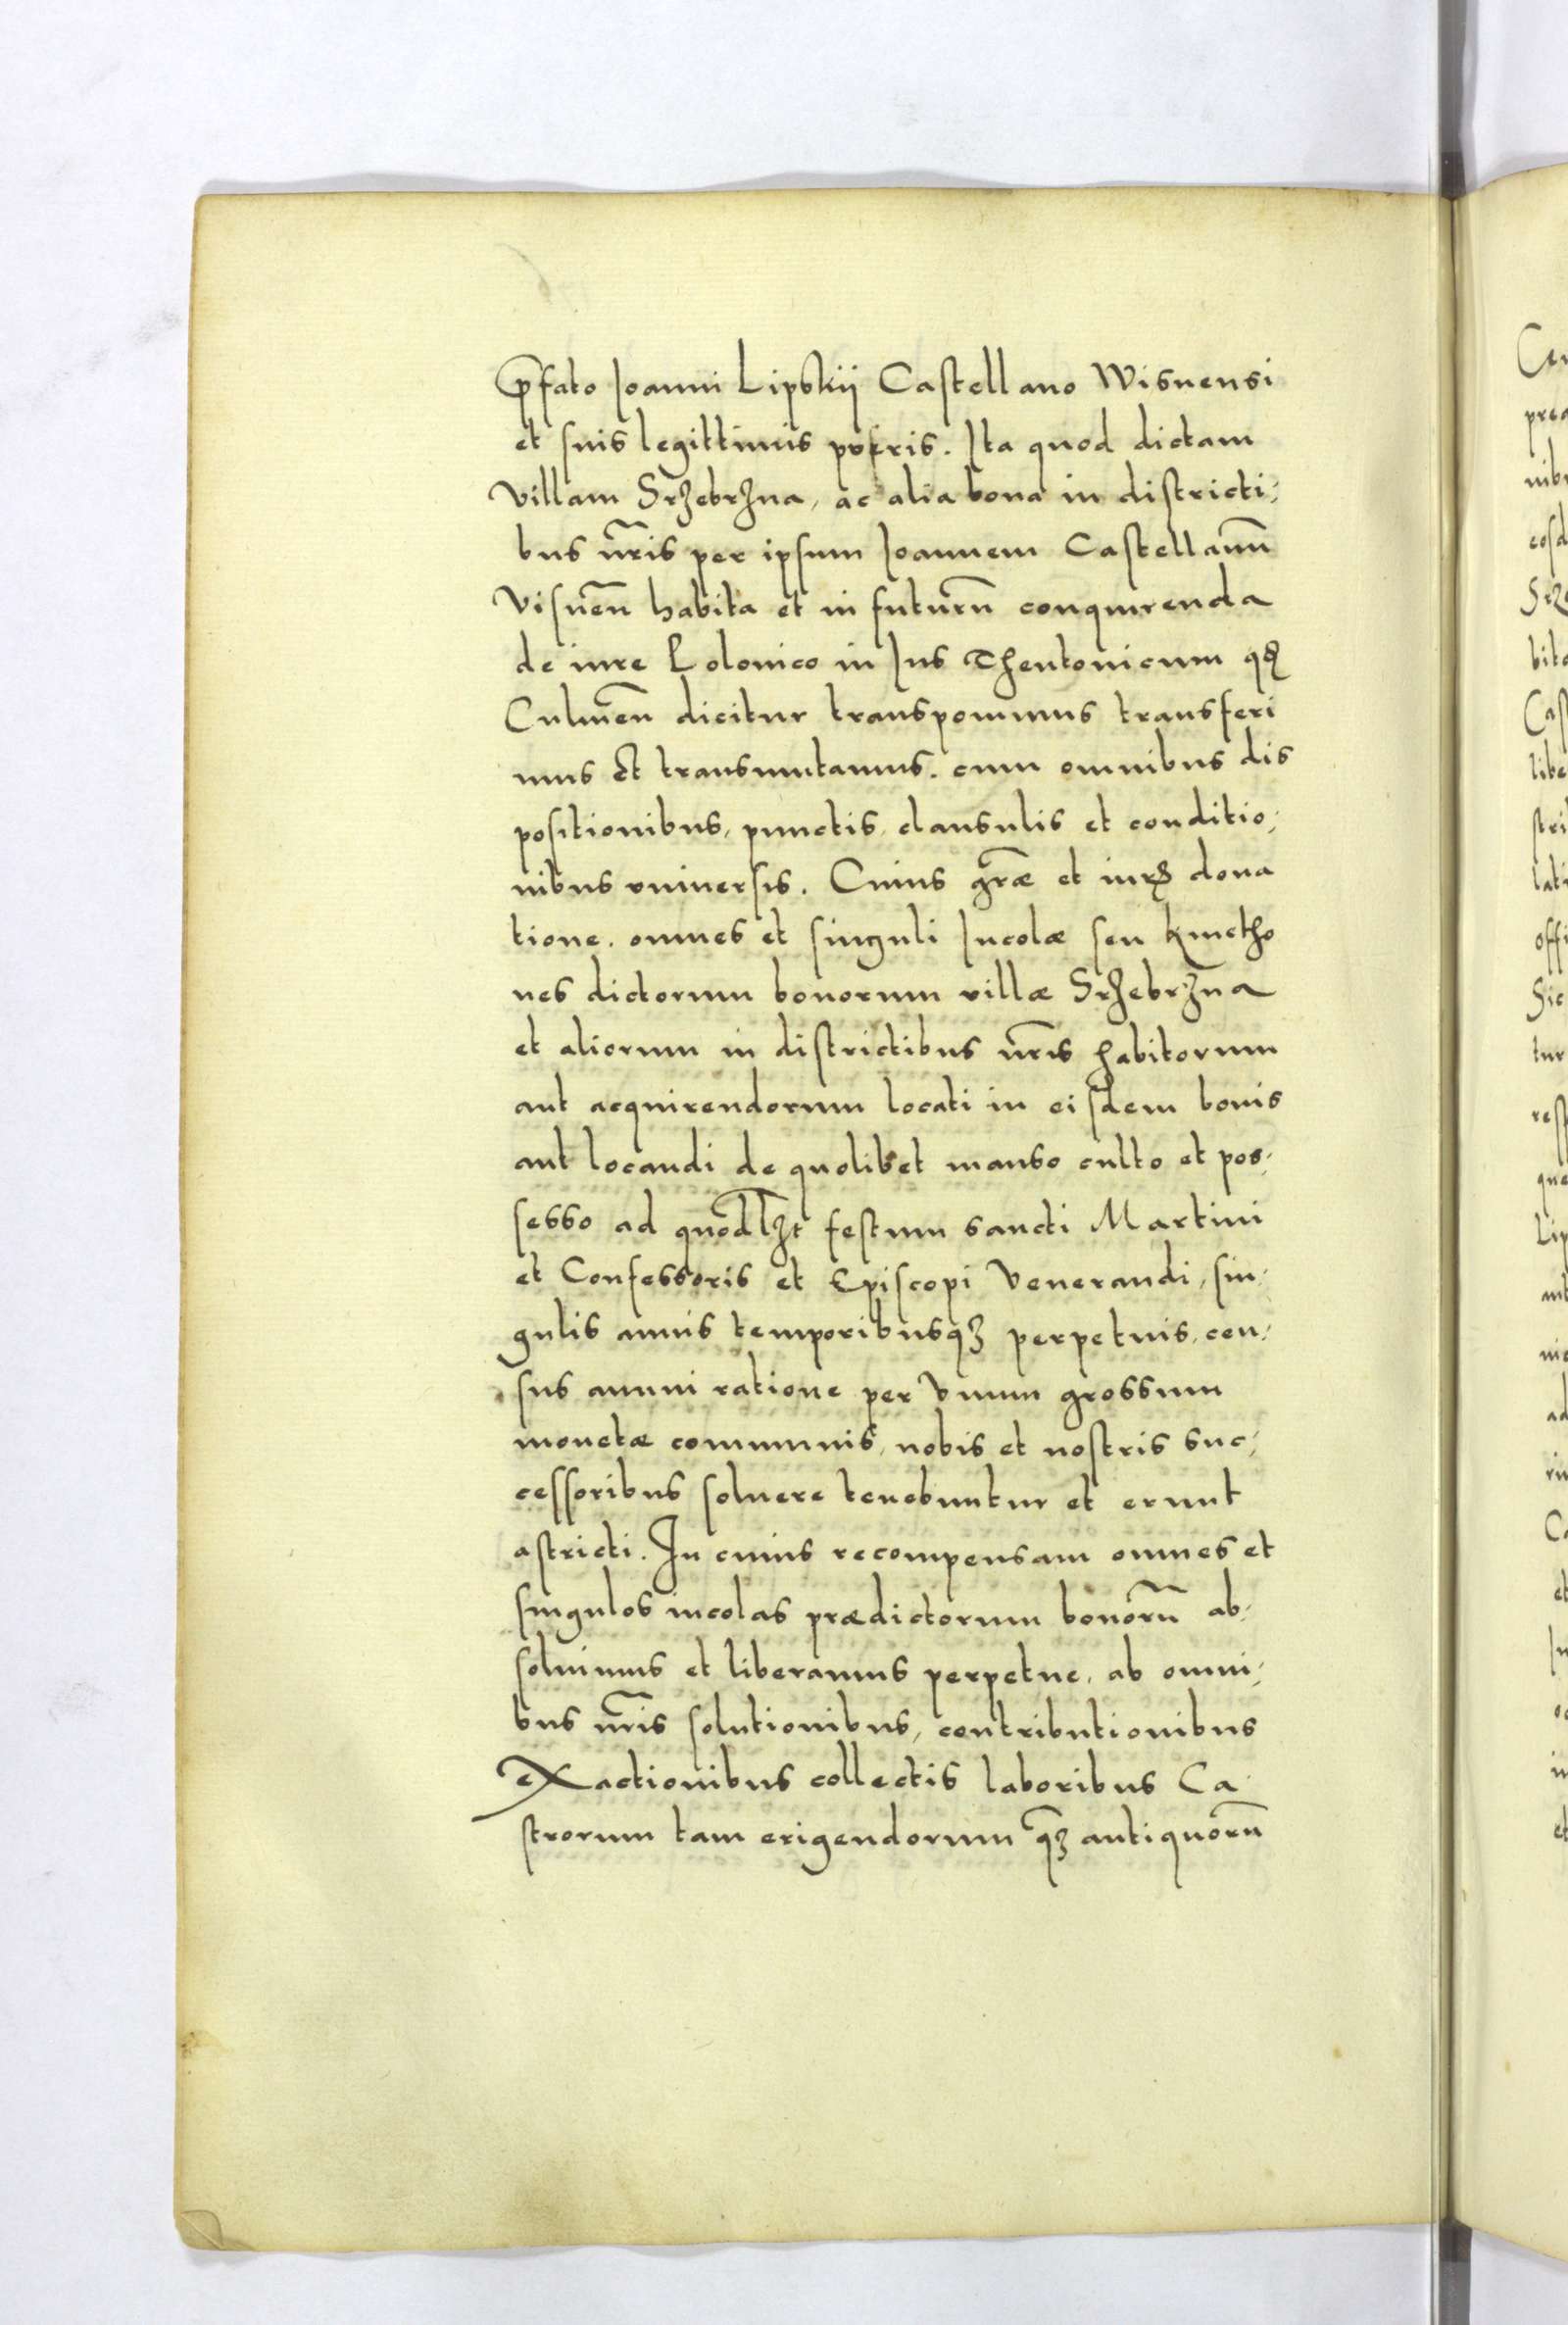 p̄fato Joanni Lipskij Castellano Wisnensi
et suis legittimis posteris. Ita quod dictam
villam Srzebrzna, ac alia bona in districti,
bus nr̄is per ipsum Joannem Castellanū
Visnen̄ habita et in futurū conquirenda
de iure Polonico in Jus Theutonicum
Culmen̄ dicitur transponimus transferi
mus Et transmutamus. cum omnibus dis
positionibus, punctis, clausulis et conditio,
nibus vniuersis. Cuius gr̄æ et dona
tione. omnes et singuli Incolæ seu kmetho
nes dictorum bonorum villæ Srzebrzna
et aliorum in districtibus nr̄is habitorum
aut acquirendorum locati in eisdem bonis
aut locandi de quolibet manso culto et pos,
sesso ad quodlʒt festum sancti Martini
et Confessoris et Episcopi Venerandi, sin,
gulis annis temporibusqʒ perpetuis, cen,
sus annui ratione per Vnum grossum
monetæ communis, nobis et nostris suc,
cessoribus soluere tenebuntur et erunt
astricti. In cuius recompensam omnes et
singulos incolas prædictorum bonorū ab,
soluimus et liberamus perpetue, ab omni,
bus nr̄is solutionibus, contributionibus
exactionibus collectis laboribus Ca
strorum tam erigendorum q̄ʒ antiquorū